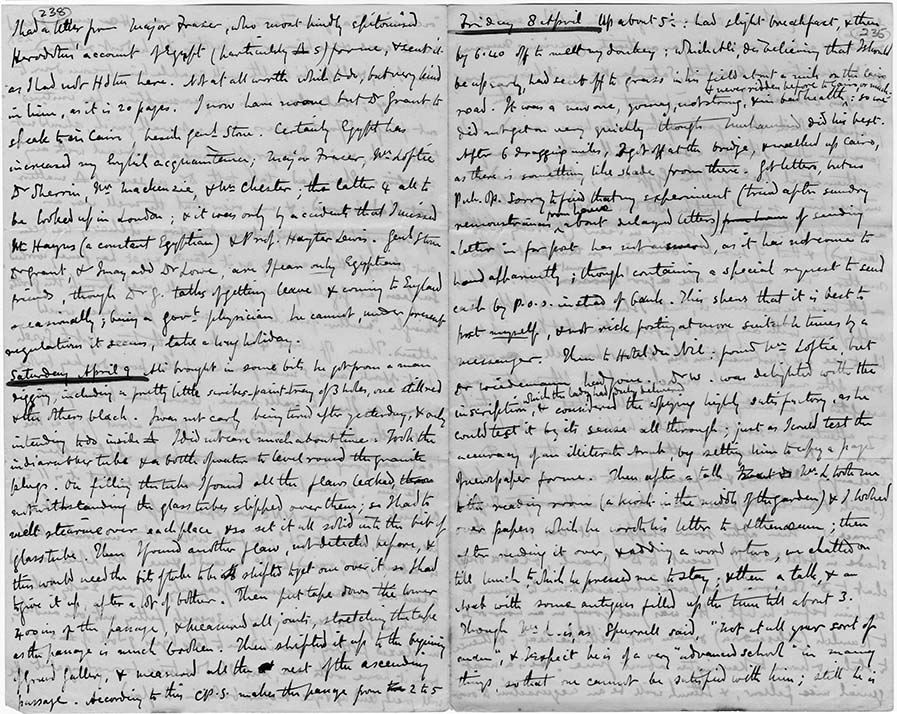 238
I had a letter from Major Fraser, who most kindly epitomised
Herodotus' account of Egypt (particularly
as I had not Hdtus here. Not at all worth while to do, but very kind
in him, as it is 20 pages. I now have no one but Dr Grant to
speak to in Cairo beside Genl Stone. Certainly Egypt has
increased my English acquaintance; Major Fraser, Mr Loftie
Dr Sherrin, Mr Mackenzie, & Mr Chester; the latter 4 all to
be looked up in London; & it was only by accident that I missed
Mr Hayns (a constant Egyptian) & Prof. Hayter Lewis. Genl Stone
Dr Grant, & I may add Dr Lowe, are I fear only Egyptian
friends, though Dr G. talks of getting leave & coming to England
occasionally; being a govt physician he cannot, under present
regulations it seems, take a long holiday.
Saturday April 9 Ali brought in some bits he got from a man
digging, including a pretty little scribes-paint-tray of 3 holes, one still red
& the others black. I was not early being tired after yesterday, & only
intending to do inside I did not care much about time. Took the
indiarubber tube & a bottle of water to level round the granite
plugs. On filling the tube I found all the flaws leaked,
notwithstanding the glass tubes slipped over them; so I had to
melt stearine over each place, & so set it all solid into the bit of
glass tube. Then I found another flaw, not detected before, &
this would need the bit of tube to be all shifted to get one over it so I had
to give it up, after a lot of bother. Then put tape down the lower
400 ins of the passage, & measured all joints, stretching the tape
as the passage is much broken. Then shifted it up to the beginning
of Grand Gallery, & measured all the rest of the ascending
passage. According to this C.P.S. makes the passage from 2 to 5
236
Friday 8 April Up about 5: had slight breakfast, & then
by 6.40 off to meet my donkey; which Ali, disbelieving that I should
be up early, had sent off to grass in his field about a mile on the Cairo
road. It was a new one, young, not strong, & in bad health; so we
& never ridden before to
did not get on very quickly though did his best.
After 6 dragging miles, I got off at the bridge, & walked up Cairo,
as there is something like shade from there. Got letters, but no
P.O. Sorry to find that my experiment (tried after sundry
remonstrances about delayed letters) of sending
a letter in for post has not answered, as it has not come to
hand apparently; though containing a special request to send
cash by P.O.O. instead of bank. This shews that it is best to
post myself, & not risk posting at more suitable times by a
messenger. Then to Hotel du Nil: found Mr Loftie but
Dr Wiedemann had gone. Dr W. was delighted with the
inscription, & considered the copying highly satisfactory, as he
could test it by its sense all through; just as I could test the
accuracy of an illiterate Arab by setting him to copy a page
of newspaper for me. Then after a talk Mr L. took me
to the reading room (a kiosk in the middle of the garden) & I looked
over papers while he wrote his letter to Athenaeum; then
after reading it over, & adding a word or two, we chatted on
till lunch to which he pressed me to stay, & then a talk, & a
look with some antiques filled up the time till about 3.
Though Mr L. is as Spurrell said, "Not at all your sort of
man", & I expect he is of a very "advanced school" in many
things, so that one cannot be satisfied with him; still he is